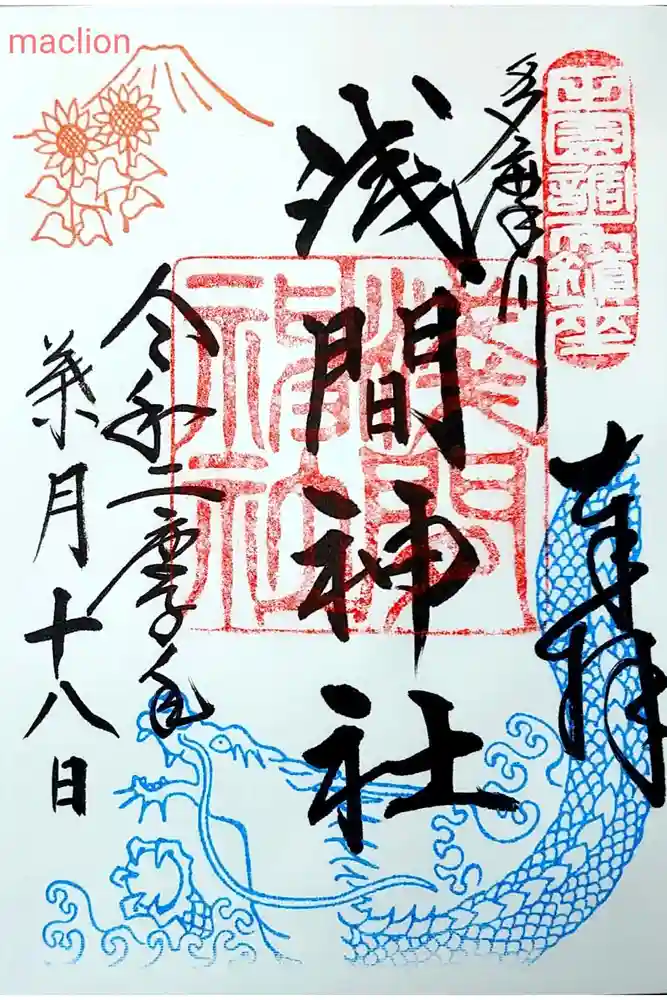 maclion
田園調布鎮座
奉拝
多摩川
浅間神社
淺間
神社
令和二庚子年
葉月十八日